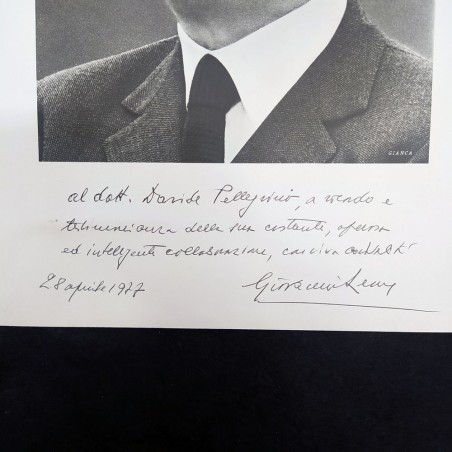 GIANCA
al dott. Davide Pellegrino, a ricordo e
testimonianza della sua costante, operosa
ed intelligente collaborazione, con viva cordialità
28 aprile 1977
Giovanni Leone